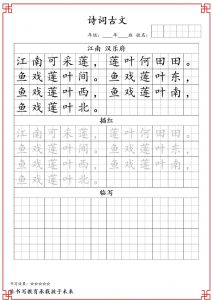 诗词古文
年级:____年____班 姓名:
江南 汉乐府
江南可采莲,莲叶何田田。
鱼戏莲叶间。鱼戏莲叶东,
鱼戏莲叶西,鱼戏莲叶南,
鱼戏莲叶北。
描红
江南可采莲,莲叶何田田。
鱼戏莲叶间。鱼戏莲叶东,
鱼戏莲叶西,鱼戏莲叶南,
鱼戏莲叶北。
临写
书写效果:☆☆☆☆☆
让书写教育承载孩子未来